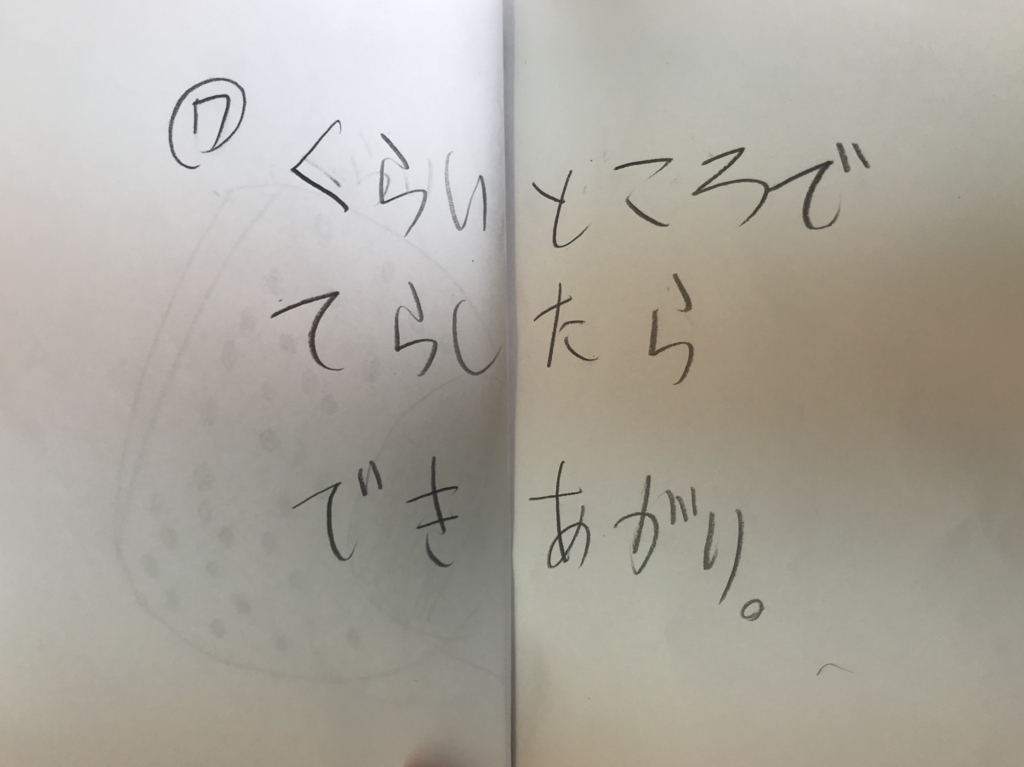 ⑦
くらいところで
てらしたら
できあがり。